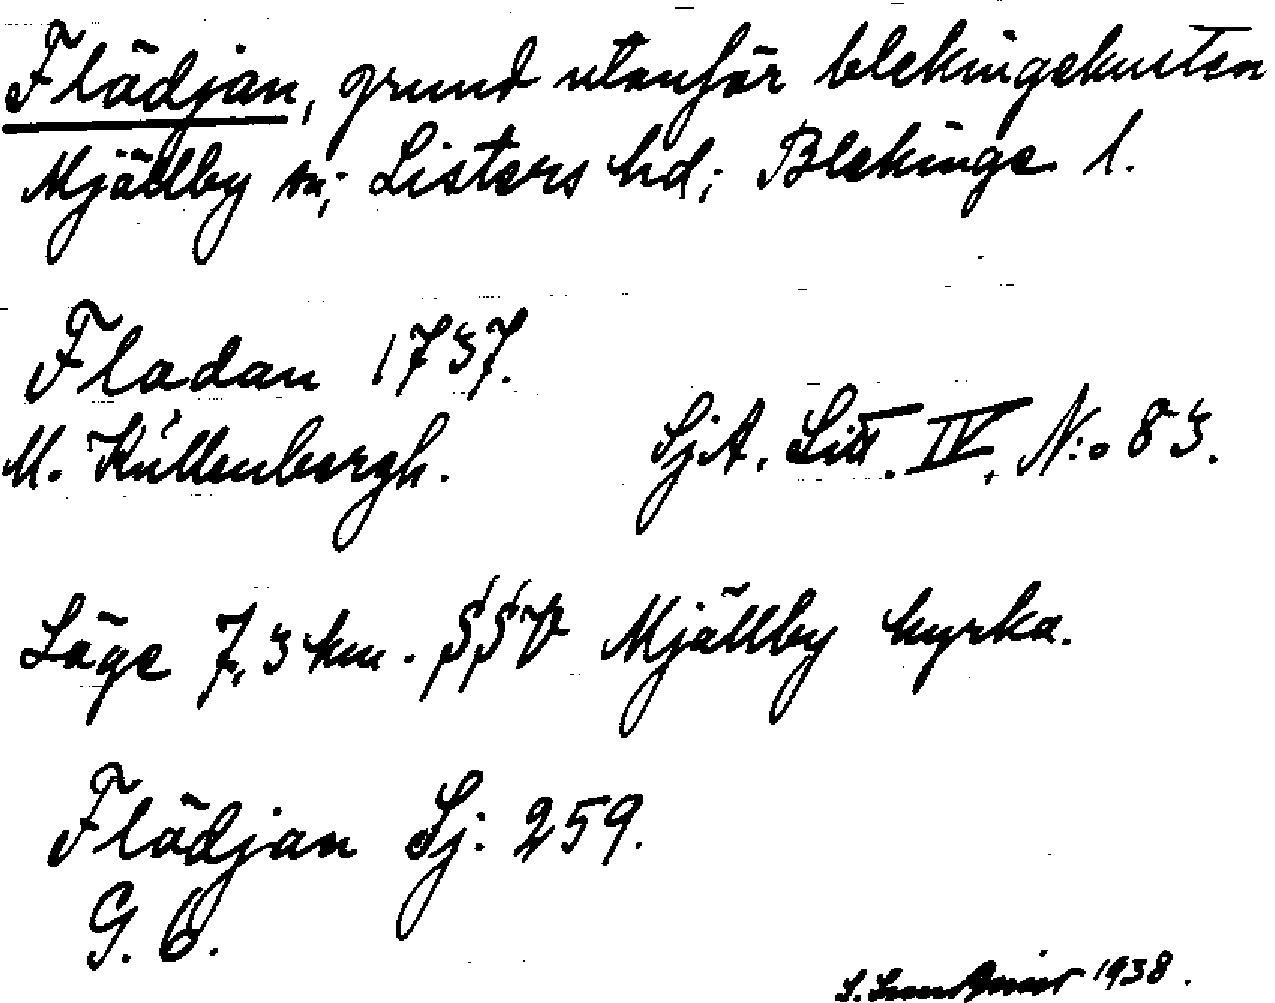 Flädjan, grund utanför blekingekusten
Mjällby sn; Listers hd; Blekinge l.
Fladan 1737.
M. Küllenbergh.
SjA. Litt. IV. N:o 83.
Läge 7,3 km. SSV Mjällby kyrka.
Flädjan Sj: 259.
G. Ö.
S. 1938.